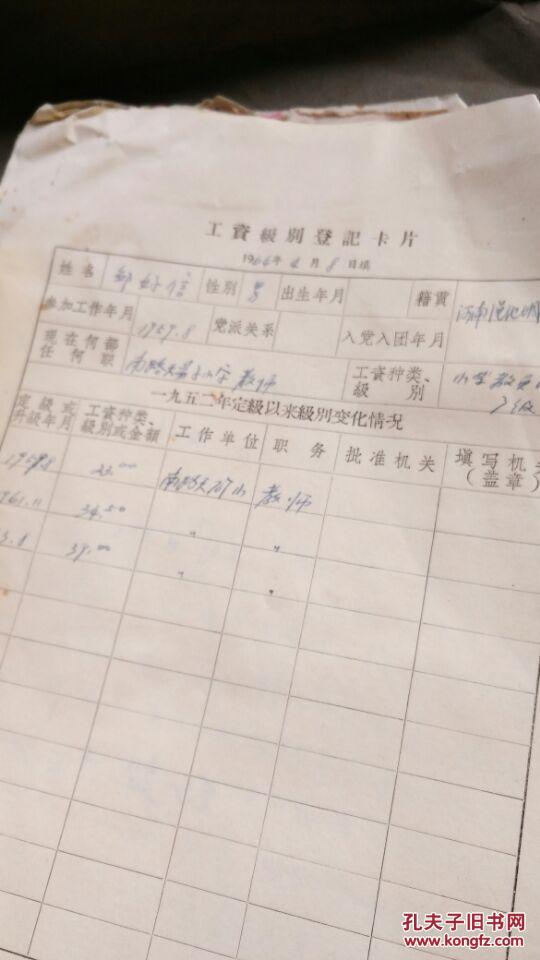 工資級別登記卡片
1966年4月8日填
姓名 好信 性別 男 出生年月 籍貫 河南
参加工作年月 1959.8 党派关系 入党入团年月
現在何部任何职 小学 教师 工資种类、級別 小学教
一九五二年定級以来級別变化情况
定級或升級年月 工資种类、級別或金額 工作单位 职务 批准机关 填写机 (盖章)
1959.8 教师
961.11 34.50 〃 〃
3.8 39.00 〃 〃
孔夫子旧书网
www.kongfz.com